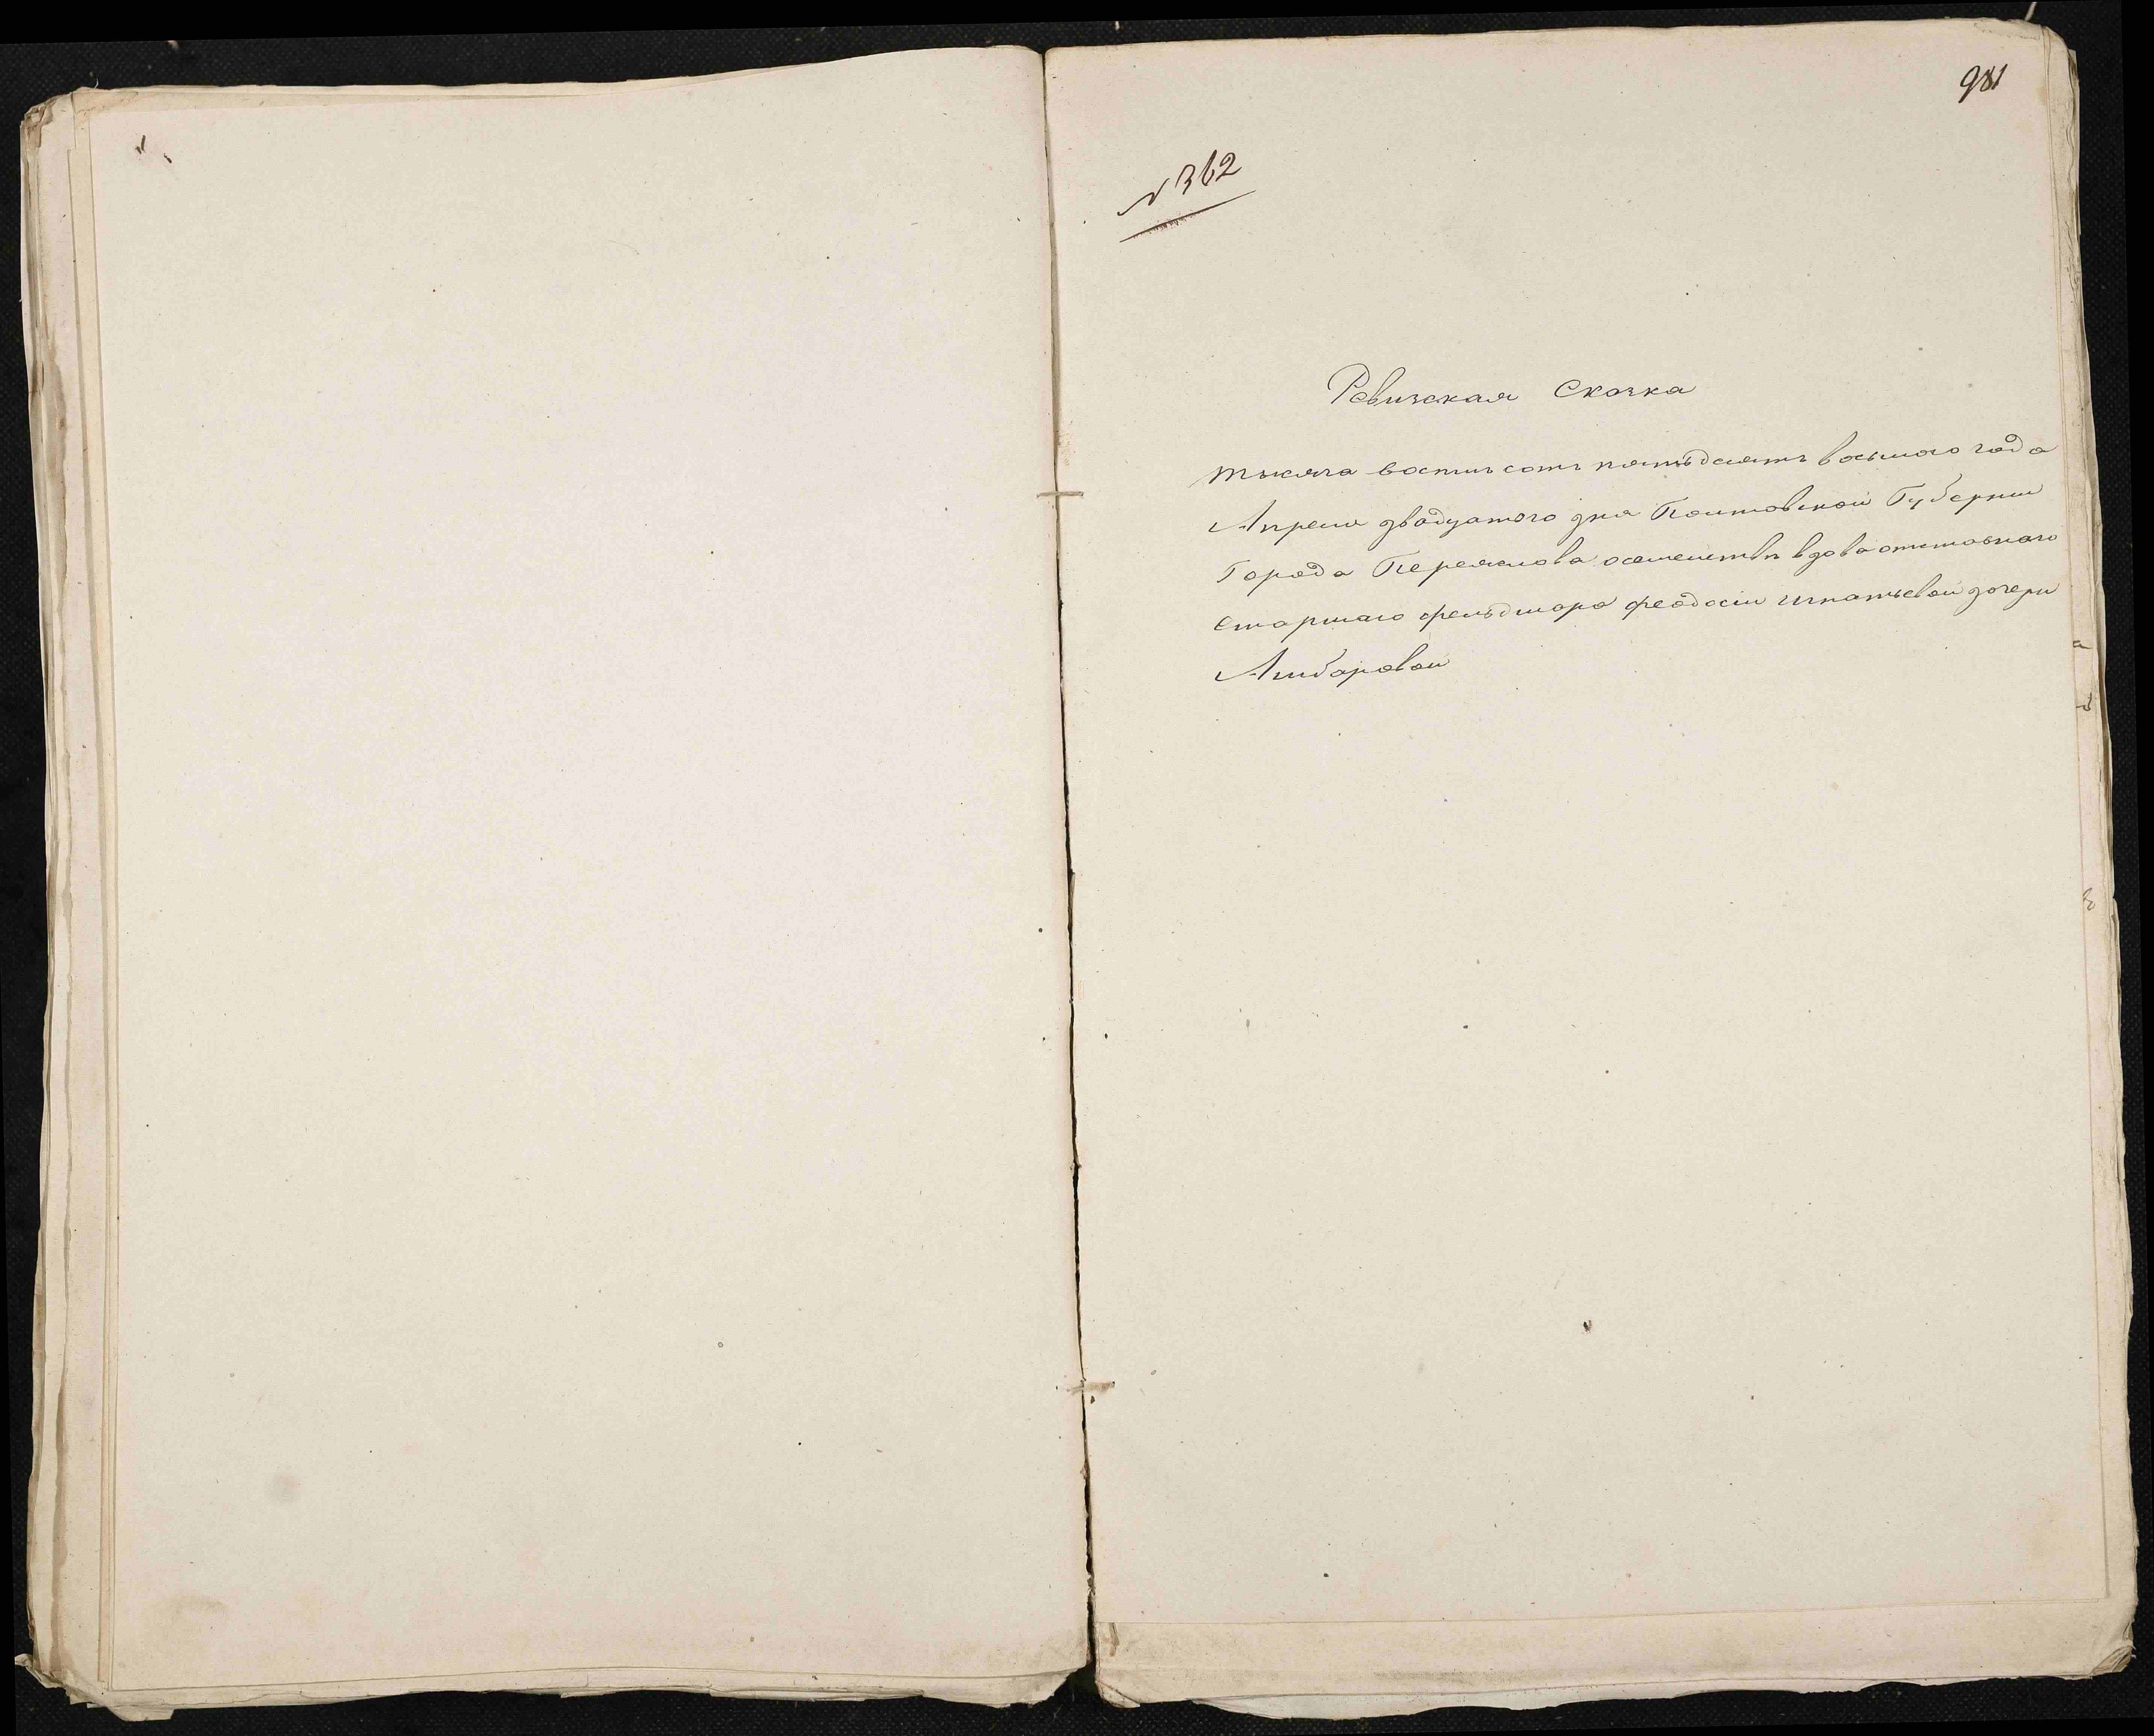 981
№ 362
Ревизская Сказка
тысяча восемь сотъ пятьдесятъ восьмаго года
Апреля двадцатого дня Полтавской Губернии
Города Переяслова осемействѣ вдовы отставнаго
Старшаго фельдшера Феодосии Игнатьевой дочери
Амбаровой